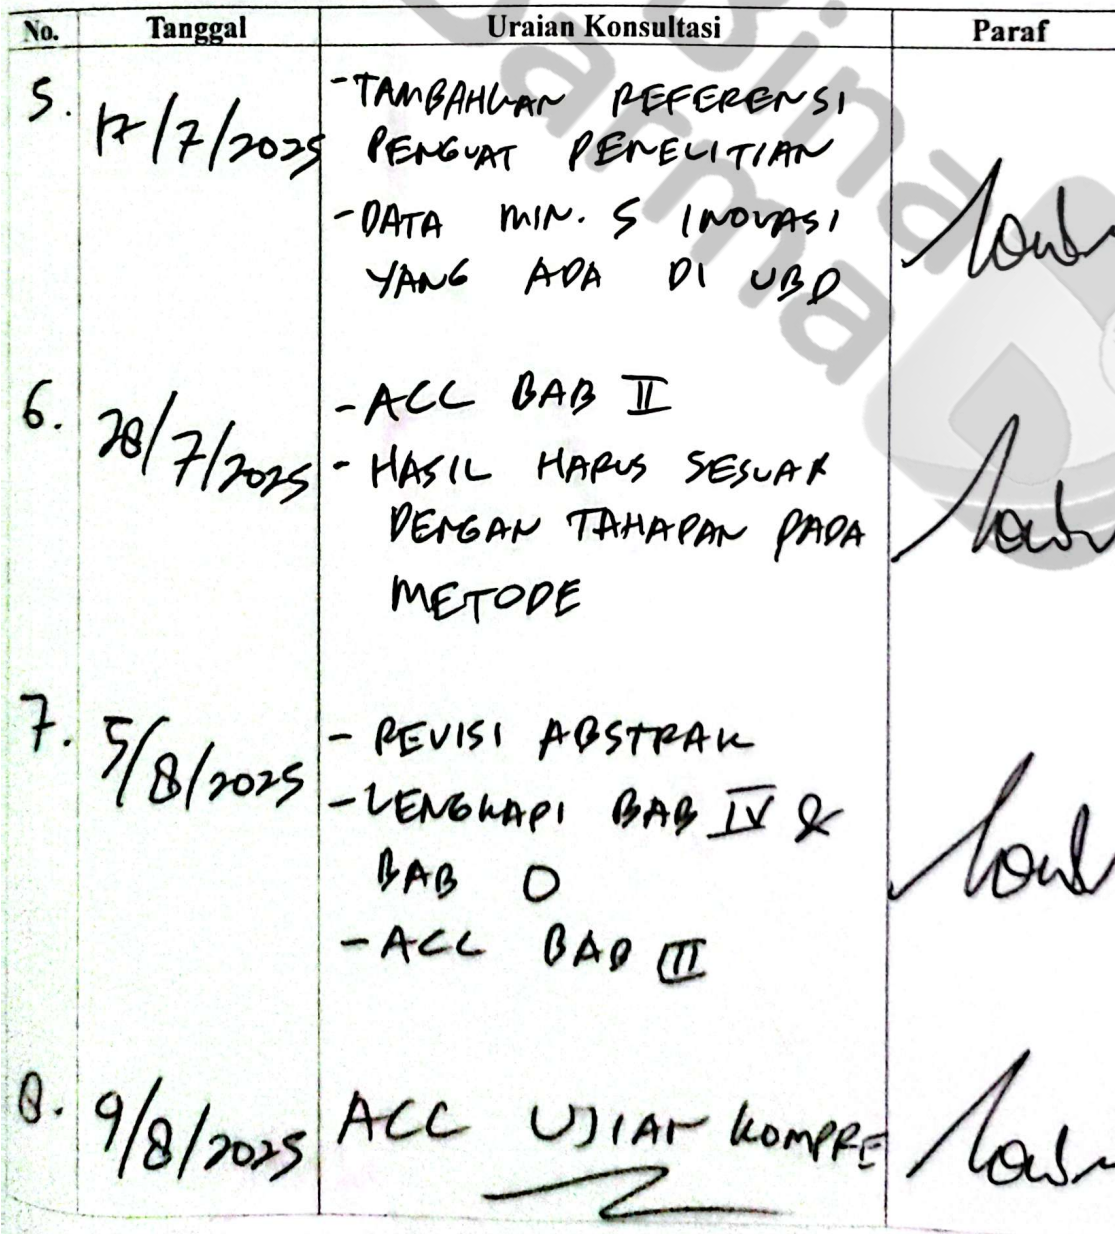 No. Tanggal Uraian Konsultasi Paraf
5. 17/7/2025
- TAMBAHKAN REFERENSI
PENGUAT PENELITIAN
- DATA MIN. 5 INOVASI
YANG ADA DI UBD
6. 28/7/2025
- ACC BAB II
- HASIL HARUS SESUAI
DENGAN TAHAPAN PADA
METODE
7. 5/8/2025
- REVISI ABSTRAK
- LENGKAPI BAB IV &
BAB
- ACC BAB III
8. 9/8/2025 ACC UJIAN KOMPRE
Bina
Darma